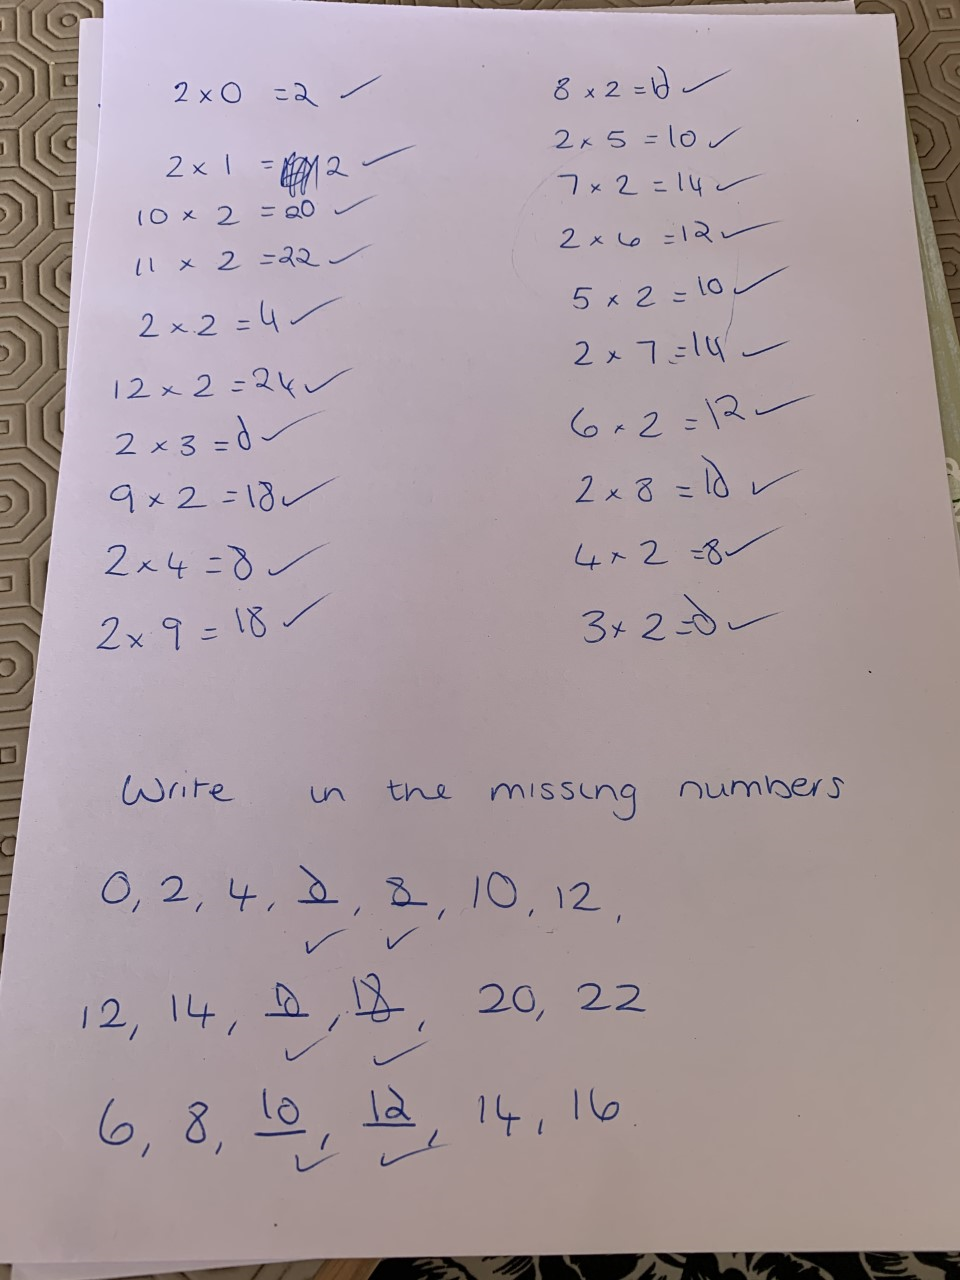 2 × 0 = 2 ✓
2 × 1 = 2 ✓
10 × 2 = 20 ✓
11 × 2 = 22 ✓
2 × 2 = 4 ✓
12 × 2 = 24 ✓
2 × 3 = 6 ✓
9 × 2 = 18 ✓
2 × 4 = 8 ✓
2 × 9 = 18 ✓
8 × 2 = 16 ✓
2 × 5 = 10 ✓
7 × 2 = 14 ✓
2 × 6 = 12 ✓
5 × 2 = 10 ✓
2 × 7 = 14 ✓
6 × 2 = 12 ✓
2 × 8 = 16 ✓
4 × 2 = 8 ✓
3 × 2 = 6 ✓
Write in the missing numbers
0, 2, 4, 6, 8, 10, 12,
✓ ✓
12, 14, 16, 18, 20, 22
✓ ✓
6, 8, 10, 12, 14, 16
✓ ✓